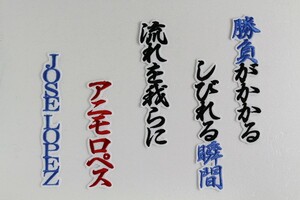 勝負がかかる
しびれる瞬間
流れを我らに
アニモロペス
JOSE LOPEZ